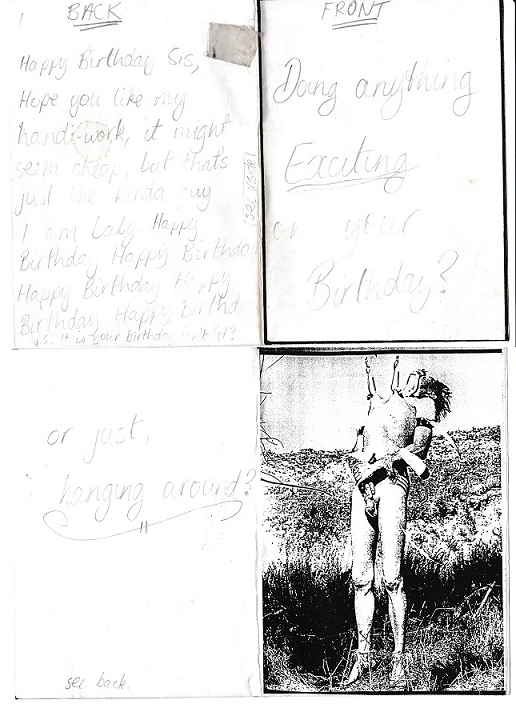 BACK
Happy Birthday Sis,
Hope you like my
handi-work, it might
seem cheap, but that's
just the kinda guy
I am Lady. Happy
Birthday Happy Birthday
Happy Birthday Happy
Birthday Happy Birthd
P.S. It is your birthday isn't it?
see inside!
FRONT
Doing anything
Exciting
on your
Birthday?
or just,
hanging around?
see back.